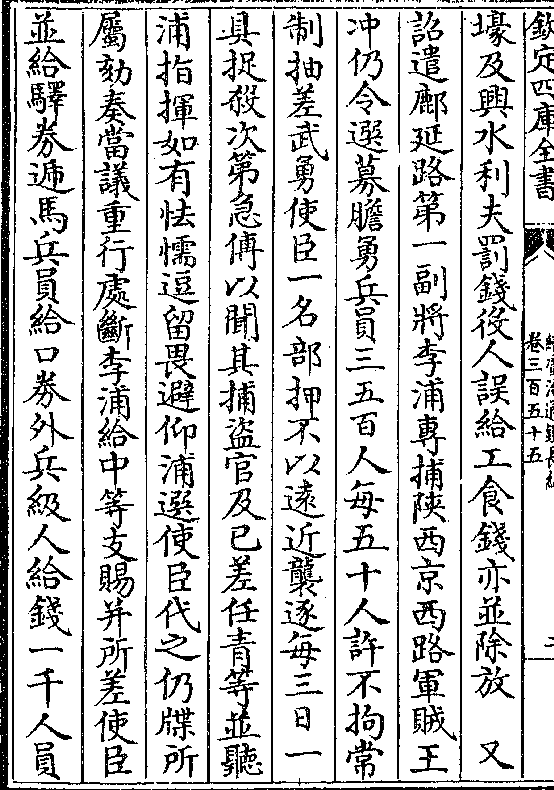 欽定四庫全書
卷三百五十五
壕及興水利夫罰錢役人誤給工食錢亦並除放　又
詔遣鄜延路第一副將李浦專捕陝西京西路軍賊王
冲仍令選募膽勇兵員三五百人每五十人許不拘常
制抽差武勇使臣一名部押不以遠近襲逐每三日一
具捉殺次第急傳以聞其捕盜官及已差任青等並聽
浦指揮如有怯懦逗留畏避仰浦選使臣代之仍牒所
屬劾奏當議重行處斷李浦給中等支賜并所差使臣
並給驛券遞馬兵員給口券外兵級人給錢一千人員